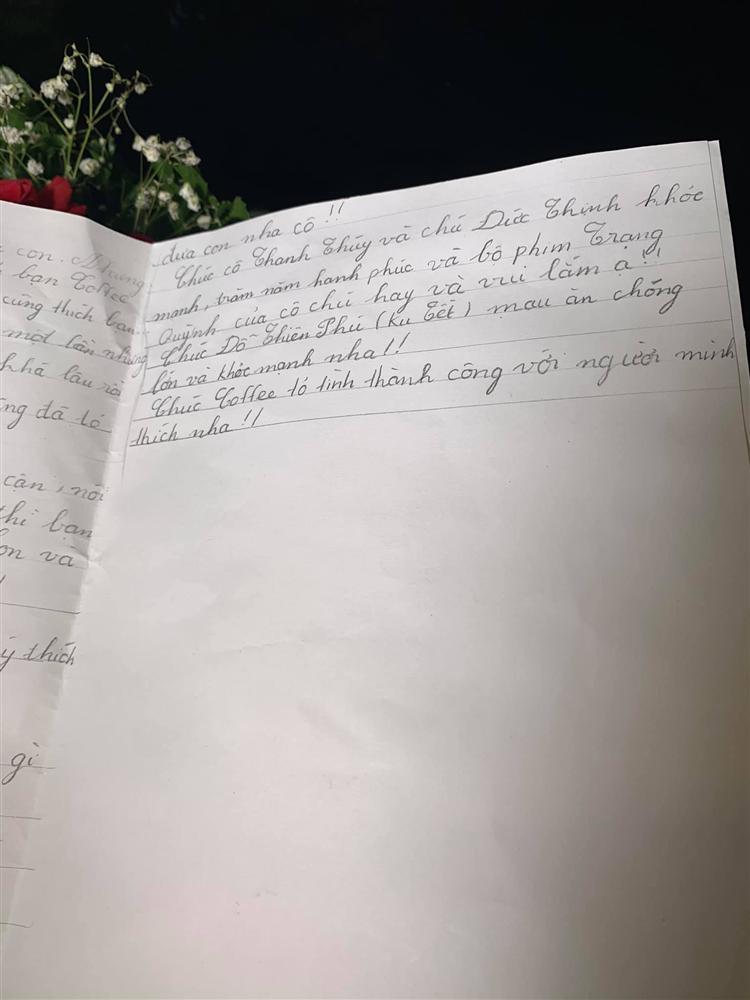 con. Nhưng
bạn Coffee
cũng thích bạn
một lần nhưng
khá lâu rồi
đã tỏ
cận, nói
thì bạn
và
ý thích
gì
đưa con nha cô !!
Chúc cô Thanh Thúy và chú Đức Thịnh khỏe
mạnh, trăm năm hạnh phúc và bộ phim Trạng
Quỳnh của cô chú hay và vui lắm ạ !!
Chúc Đỗ Thiên Phú (Ku Tết) mau ăn chóng
lớn và khỏe mạnh nha !!
Chúc Coffee tỏ tình thành công với người mình
thích nha !!